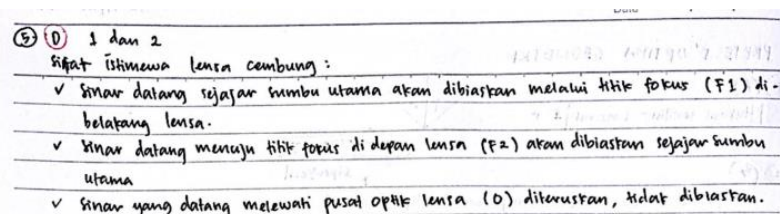 ⑤ Ⓓ 1 dan 2
Sifat istimewa lensa cembung :
✓ Sinar datang sejajar sumbu utama akan dibiaskan melalui titik fokus (F1) di-
belakang lensa.
✓ Sinar datang menuju titik fokus di depan lensa (F2) akan dibiaskan sejajar sumbu
utama
✓ Sinar yang datang melewati pusat optik lensa (O) diteruskan, tidak dibiaskan.